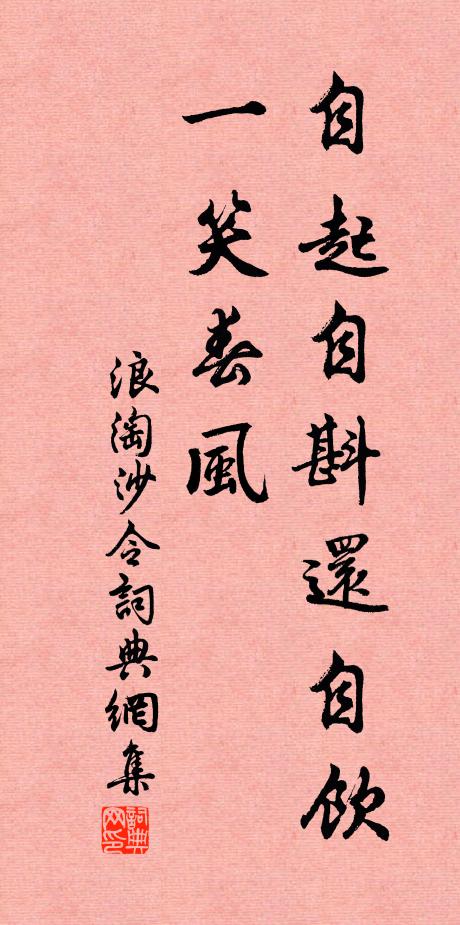 自起自斟還自飲
一笑春風
浪淘沙令詞典網集
詞典
网印